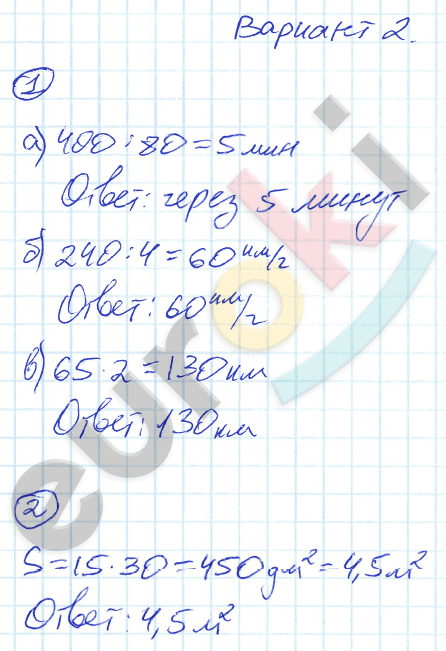 Вариант 2.
1
а) 400 : 80 = 5 мин
Ответ: через 5 минут
б) 240 : 4 = 60 км/ч
Ответ: 60 км/ч
в) 65 · 2 = 130 км
Ответ: 130 км
2
S = 15 · 30 = 450 дм² = 4,5 м²
Ответ: 4,5 м²
euroki